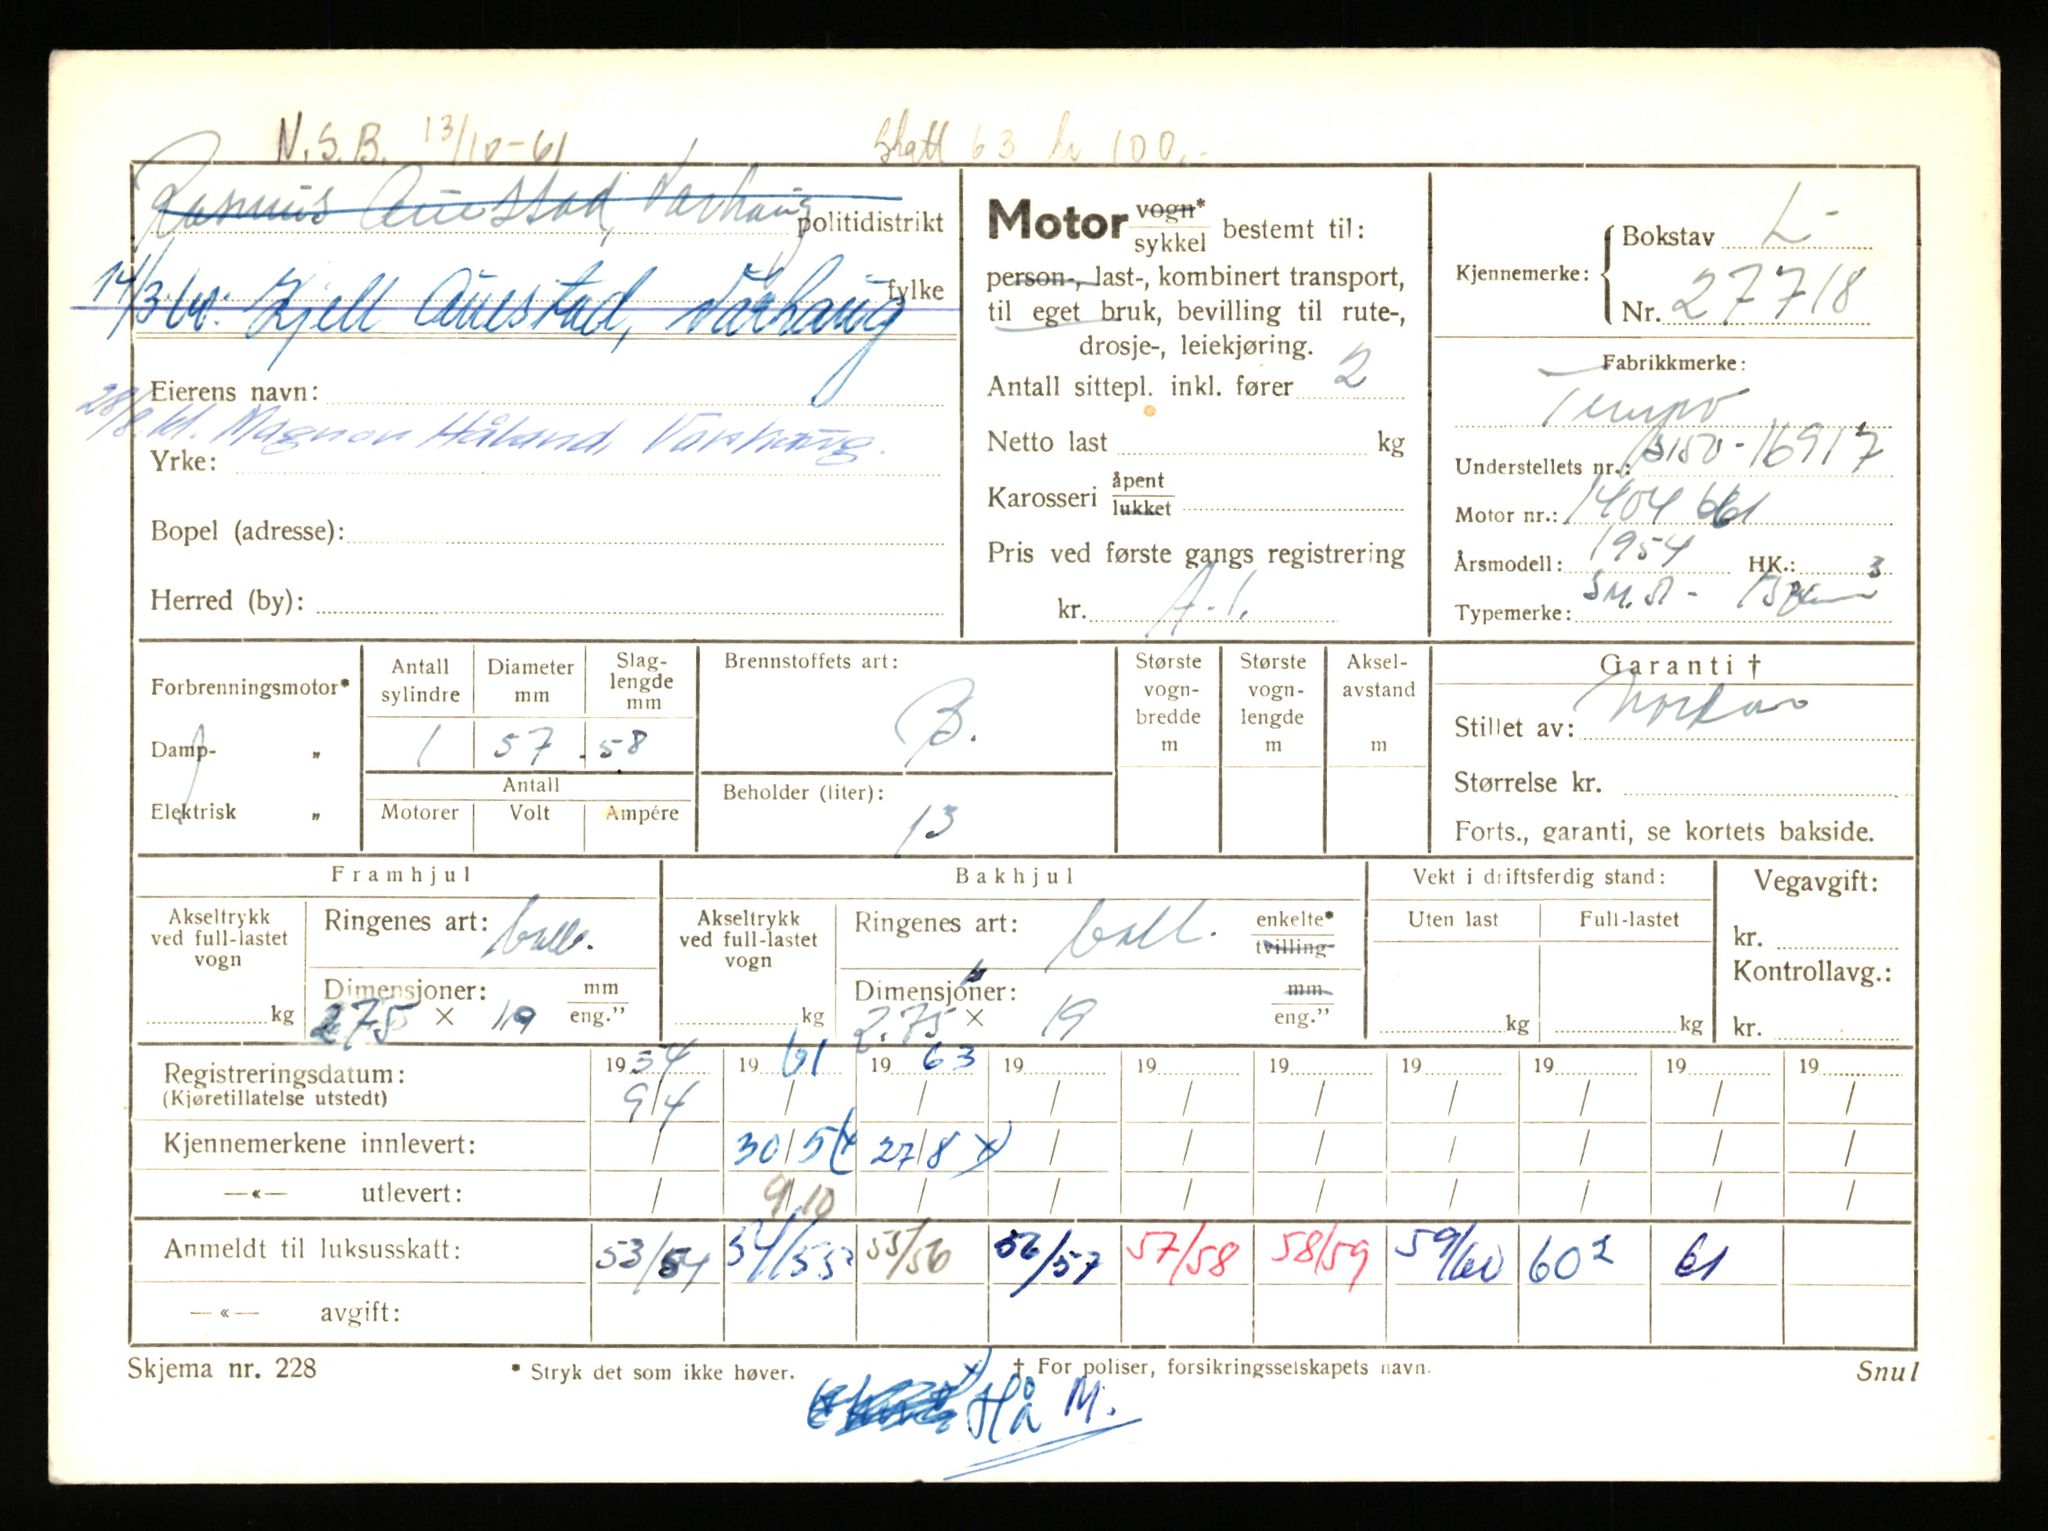 N.S.B. 13/10-61 Skatt 63 kr 100,-
Rasmus Auestad, Varhaug
politidistrikt
14/3.60. Kjell Auestad, Varhaug
fylke
Eierens navn:
28/8.61. Magnor Håland, Varhaug.
Yrke:
Bopel (adresse):
Herred (by):
Motor vogn* sykkel bestemt til:
person-, last-, kombinert transport,
til eget bruk, bevilling til rute-,
drosje-, leiekjøring.
Antall sittepl. inkl. fører 2
Netto last kg
Karosseri åpent lukket
Pris ved første gangs registrering
kr. A.-l.
Kjennemerke: Bokstav L-
Nr. 27718
Fabrikkmerke:
Tempo
Understellets nr.: 3150-16917
Motor nr.: 1404 661
Årsmodell: 1954 HK.: 3
Typemerke:
Forbrenningsmotor*
Damp- „
Elektrisk „
Antall sylindre
Diameter mm
Slag-lengde mm
1 57 . 58
Antall
Motorer Volt Ampére
Brennstoffets art:
B.
Beholder (liter):
13
Største vogn-bredde m
Største vogn-lengde m
Aksel-avstand m
Garanti †
Stillet av:
Størrelse kr.
Forts., garanti, se kortets bakside.
Framhjul
Akseltrykk ved full-lastet vogn
kg
Ringenes art: ball.
Dimensjoner: mm eng."
2.75 × 19
Bakhjul
Akseltrykk ved full-lastet vogn
kg
Ringenes art: ball. enkelte* tvilling
Dimensjoner: mm eng."
2.75 × 19
Vekt i driftsferdig stand:
Uten last Full-lastet
kg kg
Vegavgift:
kr.
Kontrollavg.:
kr.
Registreringsdatum: 1954 1961 1963 19 19 19 19 19 19 19
(Kjøretillatelse utstedt) 9/4 / / / / / / / / /
Kjennemerkene innlevert: / 30/5 (x 27/8 x) / / / / / / /
—«— utlevert: / 9/10 / / / / / / / /
Anmeldt til luksusskatt: 53/54 54/55 55/56 56/57 57/58 58/59 59/60 60² 61
—«— avgift:
Skjema nr. 228 * Stryk det som ikke høver. † For poliser, forsikringsselskapets navn. Snul
x) Hå M.